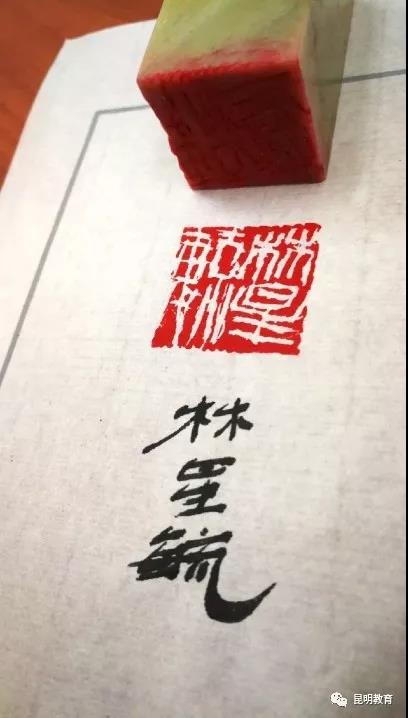 林星
林星毓
昆明教育